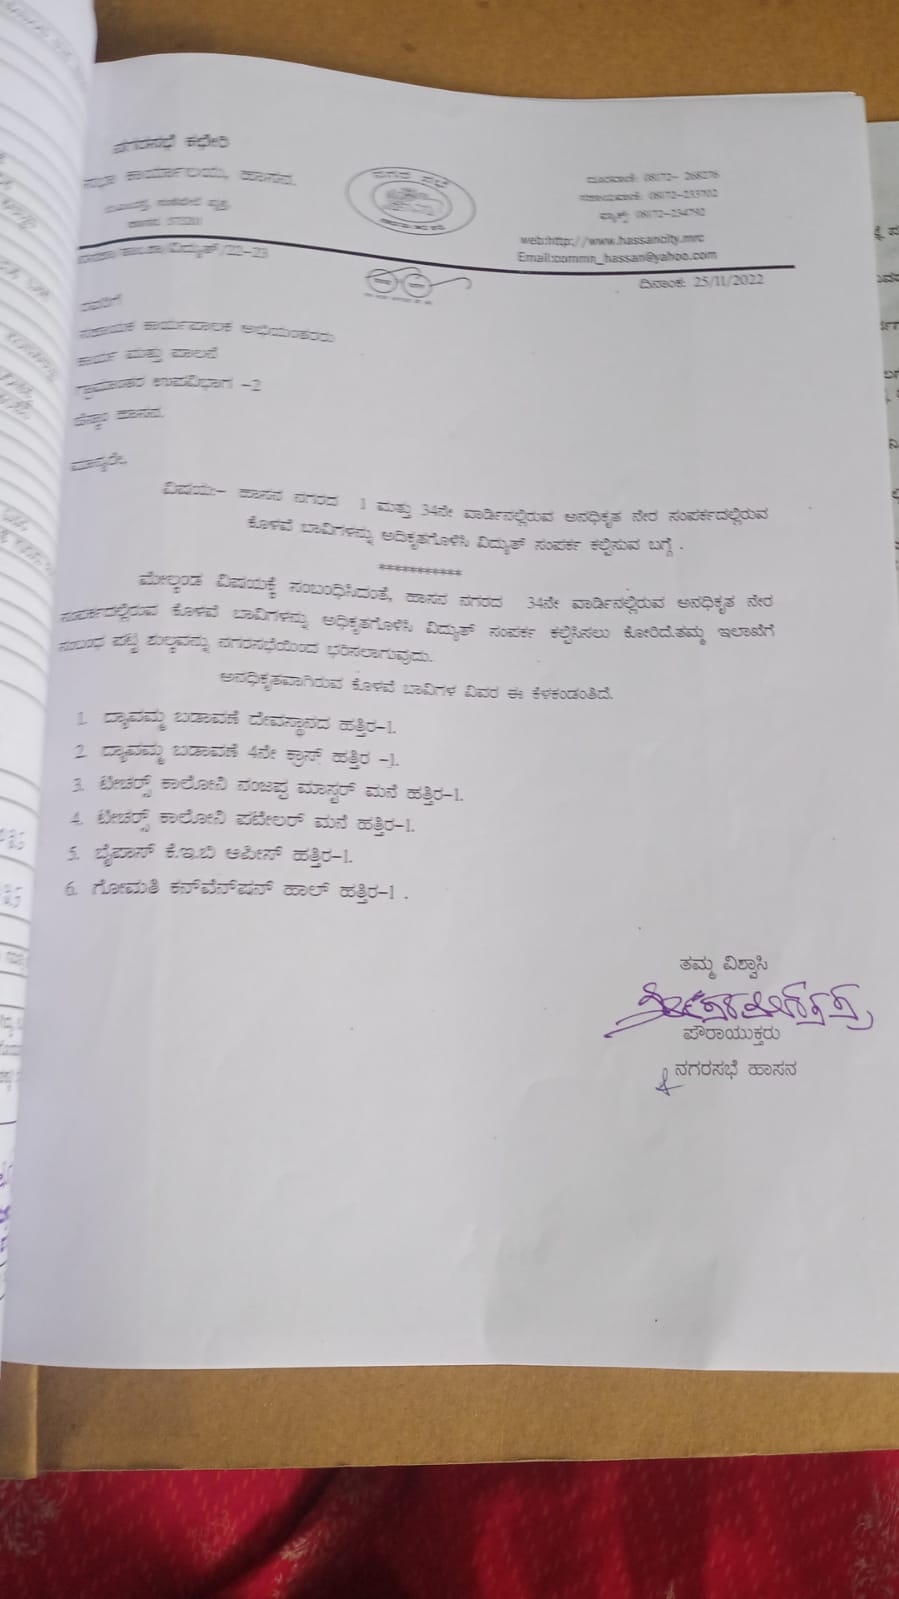 ನಗರಸಭೆ ಕಛೇರಿ
ಕಾರ್ಯಾಲಯ, ಹಾಸನ.
ಹಾಸನ 573201
ನಗರ ಸಭೆ
ದೂರವಾಣಿ: 08172- 268276
08172-233702
ಫ್ಯಾಕ್ಸ್: 08172-234792
web:http://www.hassancity.mrc
Email:commn_hassan@yahoo.com
ವಿದ್ಯುತ್ /22-23
ದಿನಾಂಕ: 25/11/2022
ರವರಿಗೆ
ಸಹಾಯಕ ಕಾರ್ಯಪಾಲಕ ಅಭಿಯಂತರರು
ಕಾರ್ಯ ಮತ್ತು ಪಾಲನೆ
ಗ್ರಾಮಾಂತರ ಉಪವಿಭಾಗ -2
ಹಾಸನ.
ಮಾನ್ಯರೇ,
ವಿಷಯ:- ಹಾಸನ ನಗರದ 1 ಮತ್ತು 34ನೇ ವಾರ್ಡಿನಲ್ಲಿರುವ ಅನಧಿಕೃತ ನೇರ ಸಂಪರ್ಕದಲ್ಲಿರುವ
ಕೊಳವೆ ಬಾವಿಗಳನ್ನು ಅದಿಕೃತಗೊಳಿಸಿ ವಿದ್ಯುತ್ ಸಂಪರ್ಕ ಕಲ್ಪಿಸುವ ಬಗ್ಗೆ .
***********
ಮೇಲ್ಕಂಡ ವಿಷಯಕ್ಕೆ ಸಂಬಂಧಿಸಿದಂತೆ, ಹಾಸನ ನಗರದ 34ನೇ ವಾರ್ಡಿನಲ್ಲಿರುವ ಅನಧಿಕೃತ ನೇರ
ಸಂಪರ್ಕದಲ್ಲಿರುವ ಕೊಳವೆ ಬಾವಿಗಳನ್ನು ಅಧಿಕೃತಗೊಳಿಸಿ ವಿದ್ಯುತ್ ಸಂಪರ್ಕ ಕಲ್ಪಿಸಿಸಲು ಕೋರಿದೆ.ತಮ್ಮ ಇಲಾಖೆಗೆ
ಸಂಬಂಧ ಪಟ್ಟ ಶುಲ್ಕವನ್ನು ನಗರಸಭೆಯಿಂದ ಭರಿಸಲಾಗುವುದು.
ಅನಧಿಕೃತವಾಗಿರುವ ಕೊಳವೆ ಬಾವಿಗಳ ವಿವರ ಈ ಕೆಳಕಂಡಂತಿದೆ.
1. ದ್ಯಾವಮ್ಮ ಬಡಾವಣೆ ದೇವಸ್ಥಾನದ ಹತ್ತಿರ-1.
2. ದ್ಯಾವಮ್ಮ ಬಡಾವಣೆ 4ನೇ ಕ್ರಾಸ್ ಹತ್ತಿರ -1.
3. ಟೀಚರ‍್ಸ್ ಕಾಲೋನಿ ನಂಜಪ್ಪ ಮಾಸ್ಟರ್ ಮನೆ ಹತ್ತಿರ-1.
4. ಟೀಚರ‍್ಸ್ ಕಾಲೋನಿ ಪಟೇಲರ್ ಮನೆ ಹತ್ತಿರ-1.
5. ಬೈಪಾಸ್ ಕೆ.ಇ.ಬಿ ಆಪೀಸ್ ಹತ್ತಿರ-1.
6. ಗೋಮತಿ ಕನ್‌ವೆನ್‌ಷನ್ ಹಾಲ್ ಹತ್ತಿರ-1 .
ತಮ್ಮ ವಿಶ್ವಾಸಿ
ಪೌರಾಯುಕ್ತರು
ನಗರಸಭೆ ಹಾಸನ